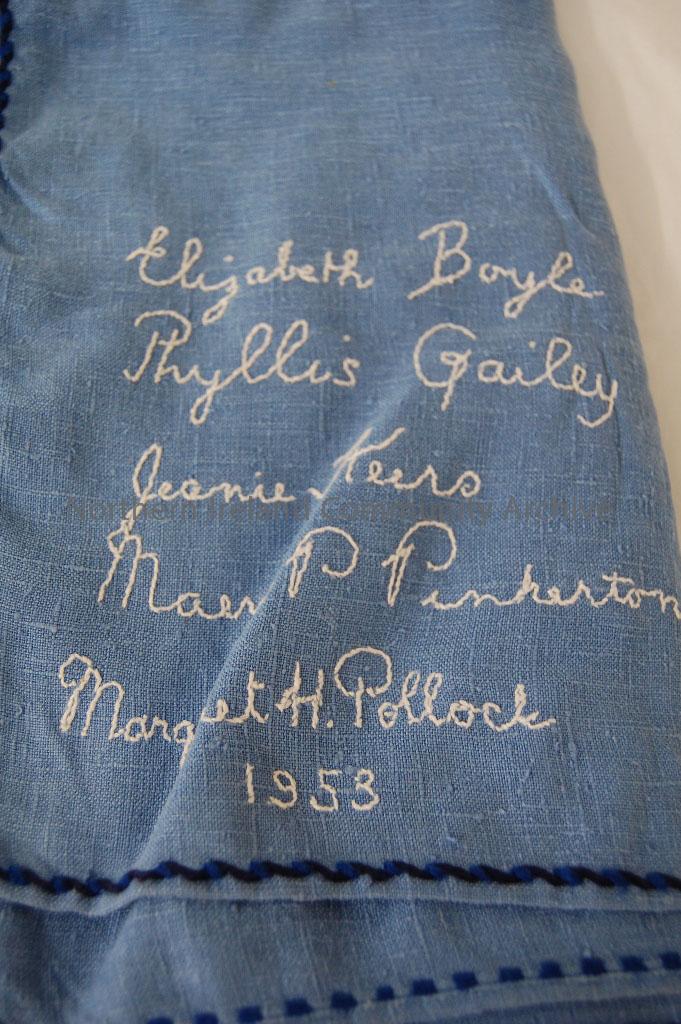 Elizabeth Boyle
Phyllis Gailey
Jeanie Keers
Northern Ireland Community Archive
P Pinkerton
H. Pollock
1953